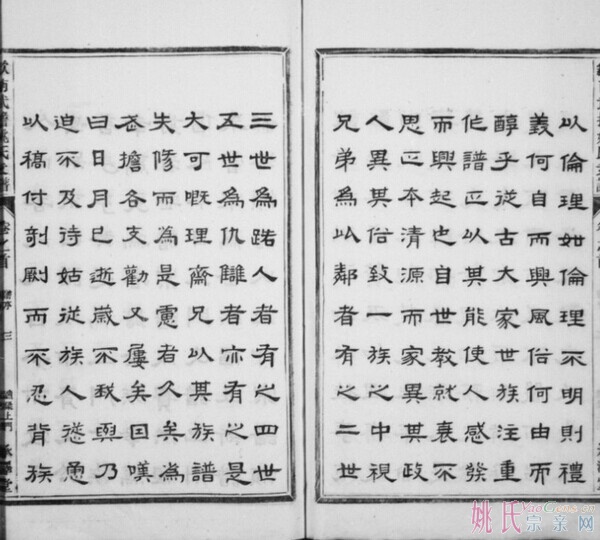 以倫理如倫理不明則禮
義何自而興風俗何由而
醇乎從古大家世族注重
作譜正以其能使人感發
而興起也自世教就衰不
思正本清源而家異其政
人異其俗致一族之中視
兄弟為以鄰者有之二世
三世為路人者有之四世
五世為仇讎者亦有之是
大可嘅理齋兄以其族譜
失修而為是慮者久矣為
擔各支勸又屢矣因嘆
曰日月已逝歲不我與乃
迫不及待姑從族人慫恿
以稿付剞劂而不忍背族
卷之首
三
姚氏宗亲网